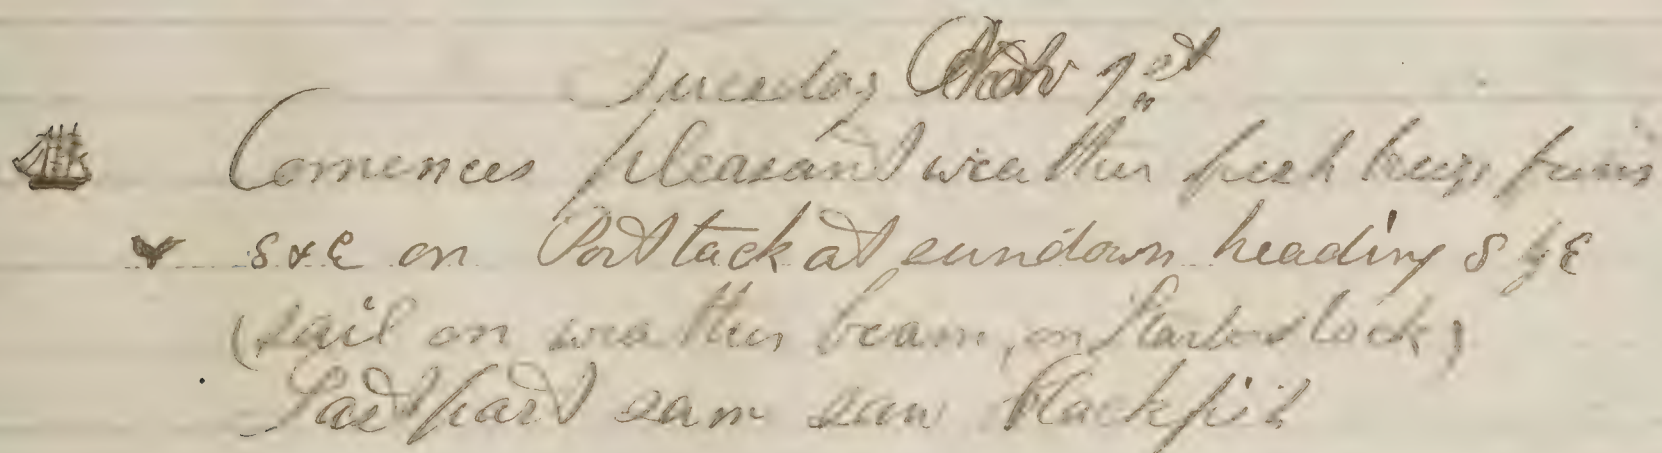 Tuesday Nov 1st
Comences pleasant weather fresh breeze from
S & E on Port tack at sundown heading S by E
(sail on weather beam, on Starbord tack)
Last part sam saw blackfish